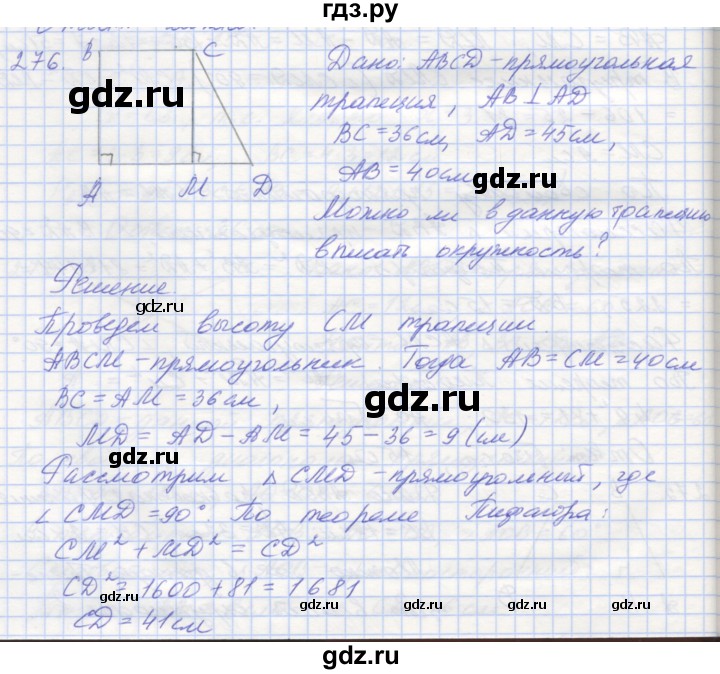 гдз.ру
276. B C
A M D
gdz.ru
Дано: ABCD - прямоугольная
трапеция, AB ⊥ AD
BC = 36 см, AD = 45 см,
AB = 40 см
gdz.ru
Можно ли в данную трапецию
вписать окружность?
Решение.
gdz.ru
gdz.ru
Проведем высоту CM трапеции.
ABCM - прямоугольник. Тогда AB = CM = 40 см
BC = AM = 36 см,
gdz.ru
MD = AD - AM = 45 - 36 = 9 (см)
gdz.ru
Рассмотрим △ CMD - прямоугольный, где
∠ CMD = 90°. По теореме Пифагора:
CM² + MD² = CD²
CD² = 1600 + 81 = 1681
gdz.ru gdz.ru gdz.ru gdz.ru
CD = 41 см
gdz.ru